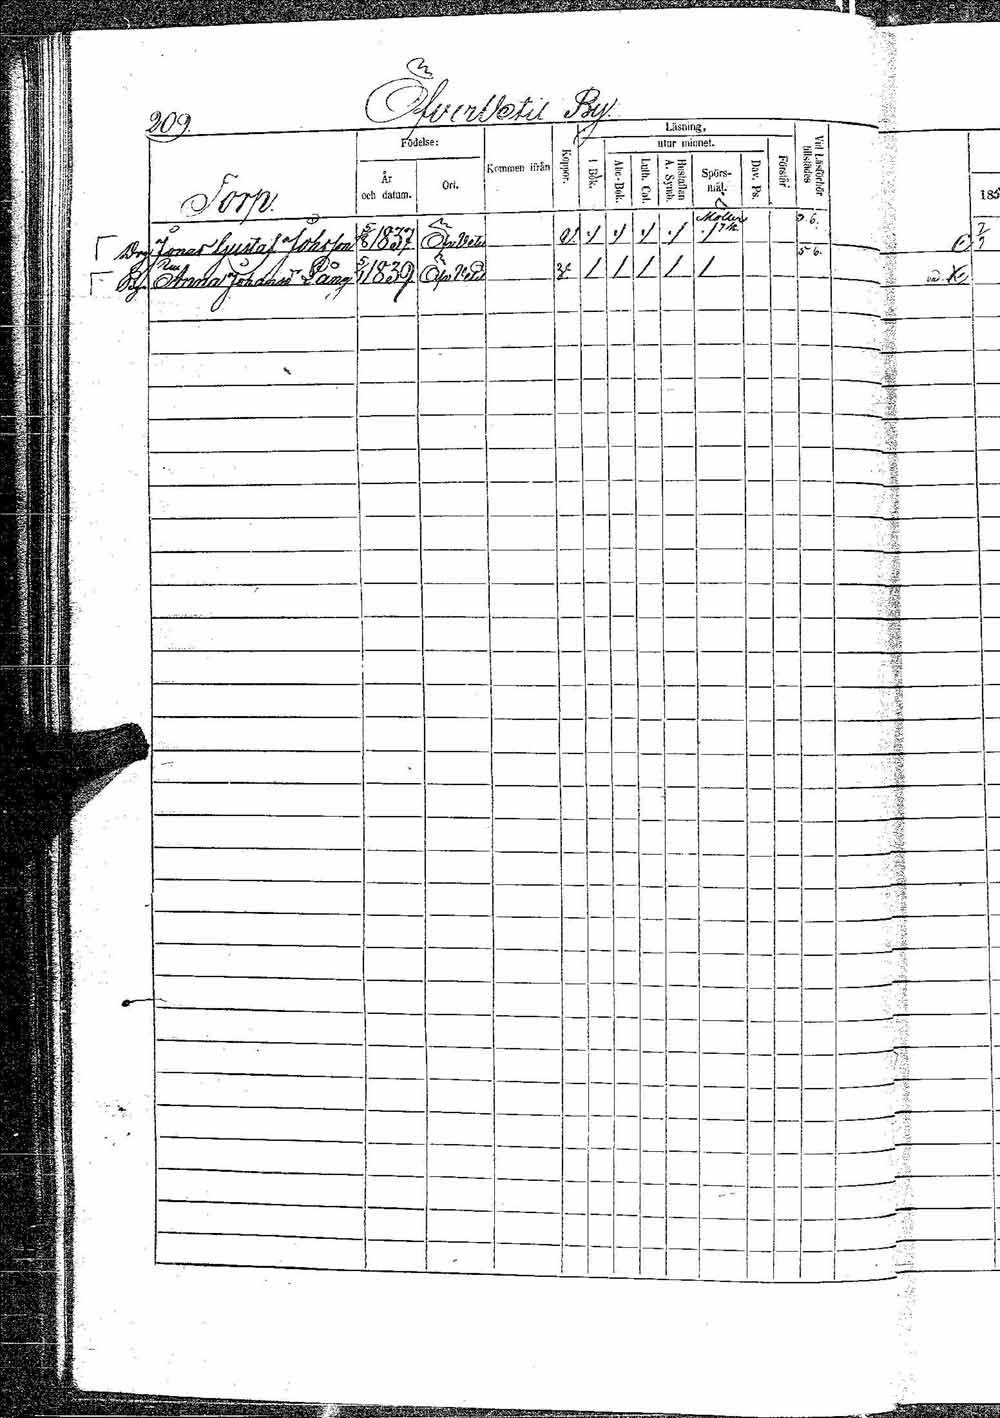 ÖfverVetil By.
209.
Torp.
Födelse:
År och datum.
Ort.
Kommen ifrån
Koppor.
Läsning,
utur minnet.
I Bok.
Abc-Bok.
Luth. Cat.
Hustaflan A. Symb.
Spörs-mål.
Dav. Ps.
Förstår
Vid Läsförhör tillstädes
185
Drg Jonas Gustaf Johsson 1837
5 6.
Anna Johansdr Pång 1839 Öfv Vetil